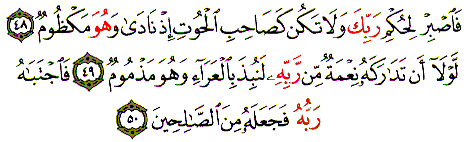 فَٱصْبِرْ لِحُكْمِ رَبِّكَ وَلَا تَكُن كَصَاحِبِ ٱلْحُوتِ إِذْ نَادَىٰ وَهُوَ مَكْظُومٌ ٤٨
لَّوْلَآ أَن تَدَارَكَهُۥ نِعْمَةٌ مِّن رَّبِّهِۦ لَنُبِذَ بِٱلْعَرَآءِ وَهُوَ مَذْمُومٌ ٤٩ فَٱجْتَبَـٰهُ
رَبُّهُۥ فَجَعَلَهُۥ مِنَ ٱلصَّـٰلِحِينَ ٥٠